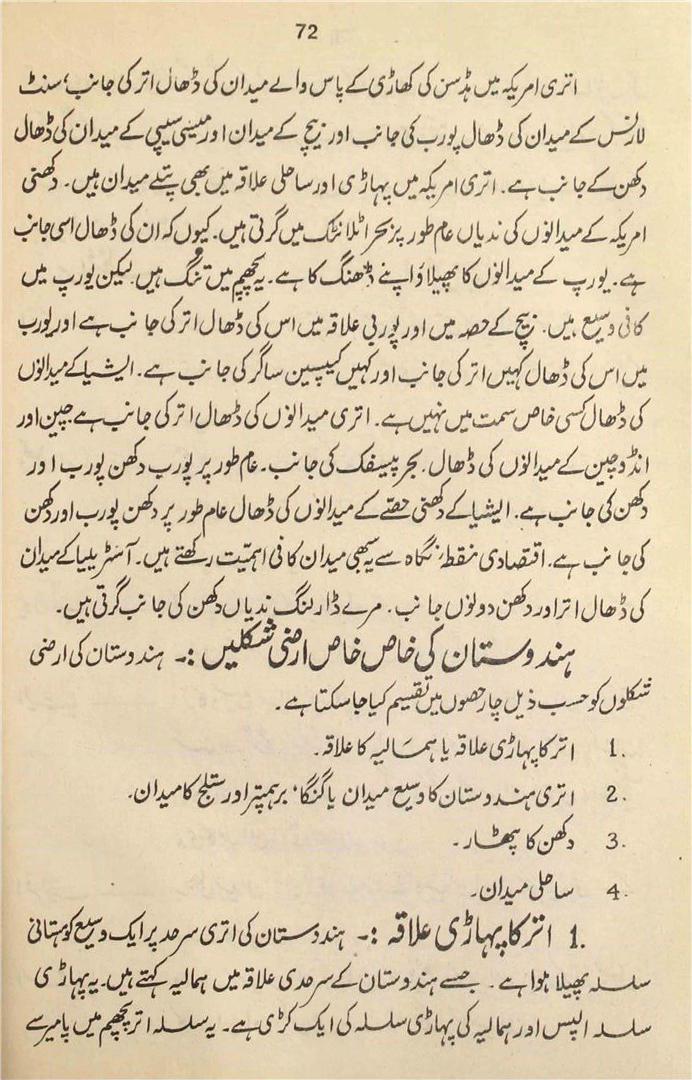 72
اتری امریکہ میں ہڈسن کی کھاڑی کے پاس والے میدان کی ڈھال اتر کی جانب، سنٹ
لارنس کے میدان کی ڈھال پورب کی جانب اور بیچ کے میدان اور میسی سیپی کے میدان کی ڈھال
دکھن کے جانب ہے۔ اتری امریکہ میں پہاڑی اور ساحلی علاقہ میں بھی پتلے میدان ہیں۔ دکھنی
امریکہ کے میدانوں کی ندیاں عام طور پر بحر اٹلانٹک میں گرتی ہیں۔ کیوں کہ ان کی ڈھال اسی جانب
ہے۔ یورپ کے میدانوں کا پھیلاؤ اپنے ڈھنگ کا ہے۔ یہ پچھم میں تنگ ہیں لیکن پورب میں
کافی وسیع ہیں۔ بیچ کے حصہ میں اور پوربی علاقہ میں اس کی ڈھال اتر کی جانب ہے اور پورب
میں اس کی ڈھال کہیں اتر کی جانب اور کہیں کیپسین ساگر کی جانب ہے۔ ایشیا کے میدانوں
کی ڈھال کسی خاص سمت میں نہیں ہے۔ اتری میدانوں کی ڈھال اتر کی جانب ہے چین اور
انڈوچین کے میدانوں کی ڈھال۔ بحر پیسفک کی جانب۔ عام طور پر پورب دکھن پورب اور
دکھن کی جانب ہے۔ ایشیا کے دکھنی حصّے کے میدانوں کی ڈھال عام طور پر دکھن پورب اور دکھن
کی جانب ہے۔ اقتصادی نقطۂ نگاہ سے یہ سبھی میدان کافی اہمیّت رکھتے ہیں۔ آسٹریلیا کے میدان
کی ڈھال اتر اور دکھن دونوں جانب۔ مرے ڈارلنگ ندیاں دکھن کی جانب گرتی ہیں۔
ہندوستان کی خاص خاص ارضی شکلیں :۔ ہندوستان کی ارضی
شکلوں کو حسب ذیل چار حصوں میں تقسیم کیا جا سکتا ہے۔
1. اتر کا پہاڑی علاقہ یا ہمالیہ کا علاقہ۔
2. اتری ہندوستان کا وسیع میدان یا گنگا، برہمپتر اور ستلج کا میدان۔
3. دکھن کا پٹھار۔
4. ساحلی میدان۔
1. اتر کا پہاڑی علاقہ :۔ ہندوستان کی اتری سرحد پر ایک وسیع کوہستانی
سلسلہ پھیلا ہوا ہے۔ جسے ہندوستان کے سرحدی علاقہ میں ہمالیہ کہتے ہیں۔ یہ پہاڑی
سلسلہ الپس اور ہمالیہ کی پہاڑی سلسلہ کی ایک کڑی ہے۔ یہ سلسلہ اتر پچھم میں پامیر سے